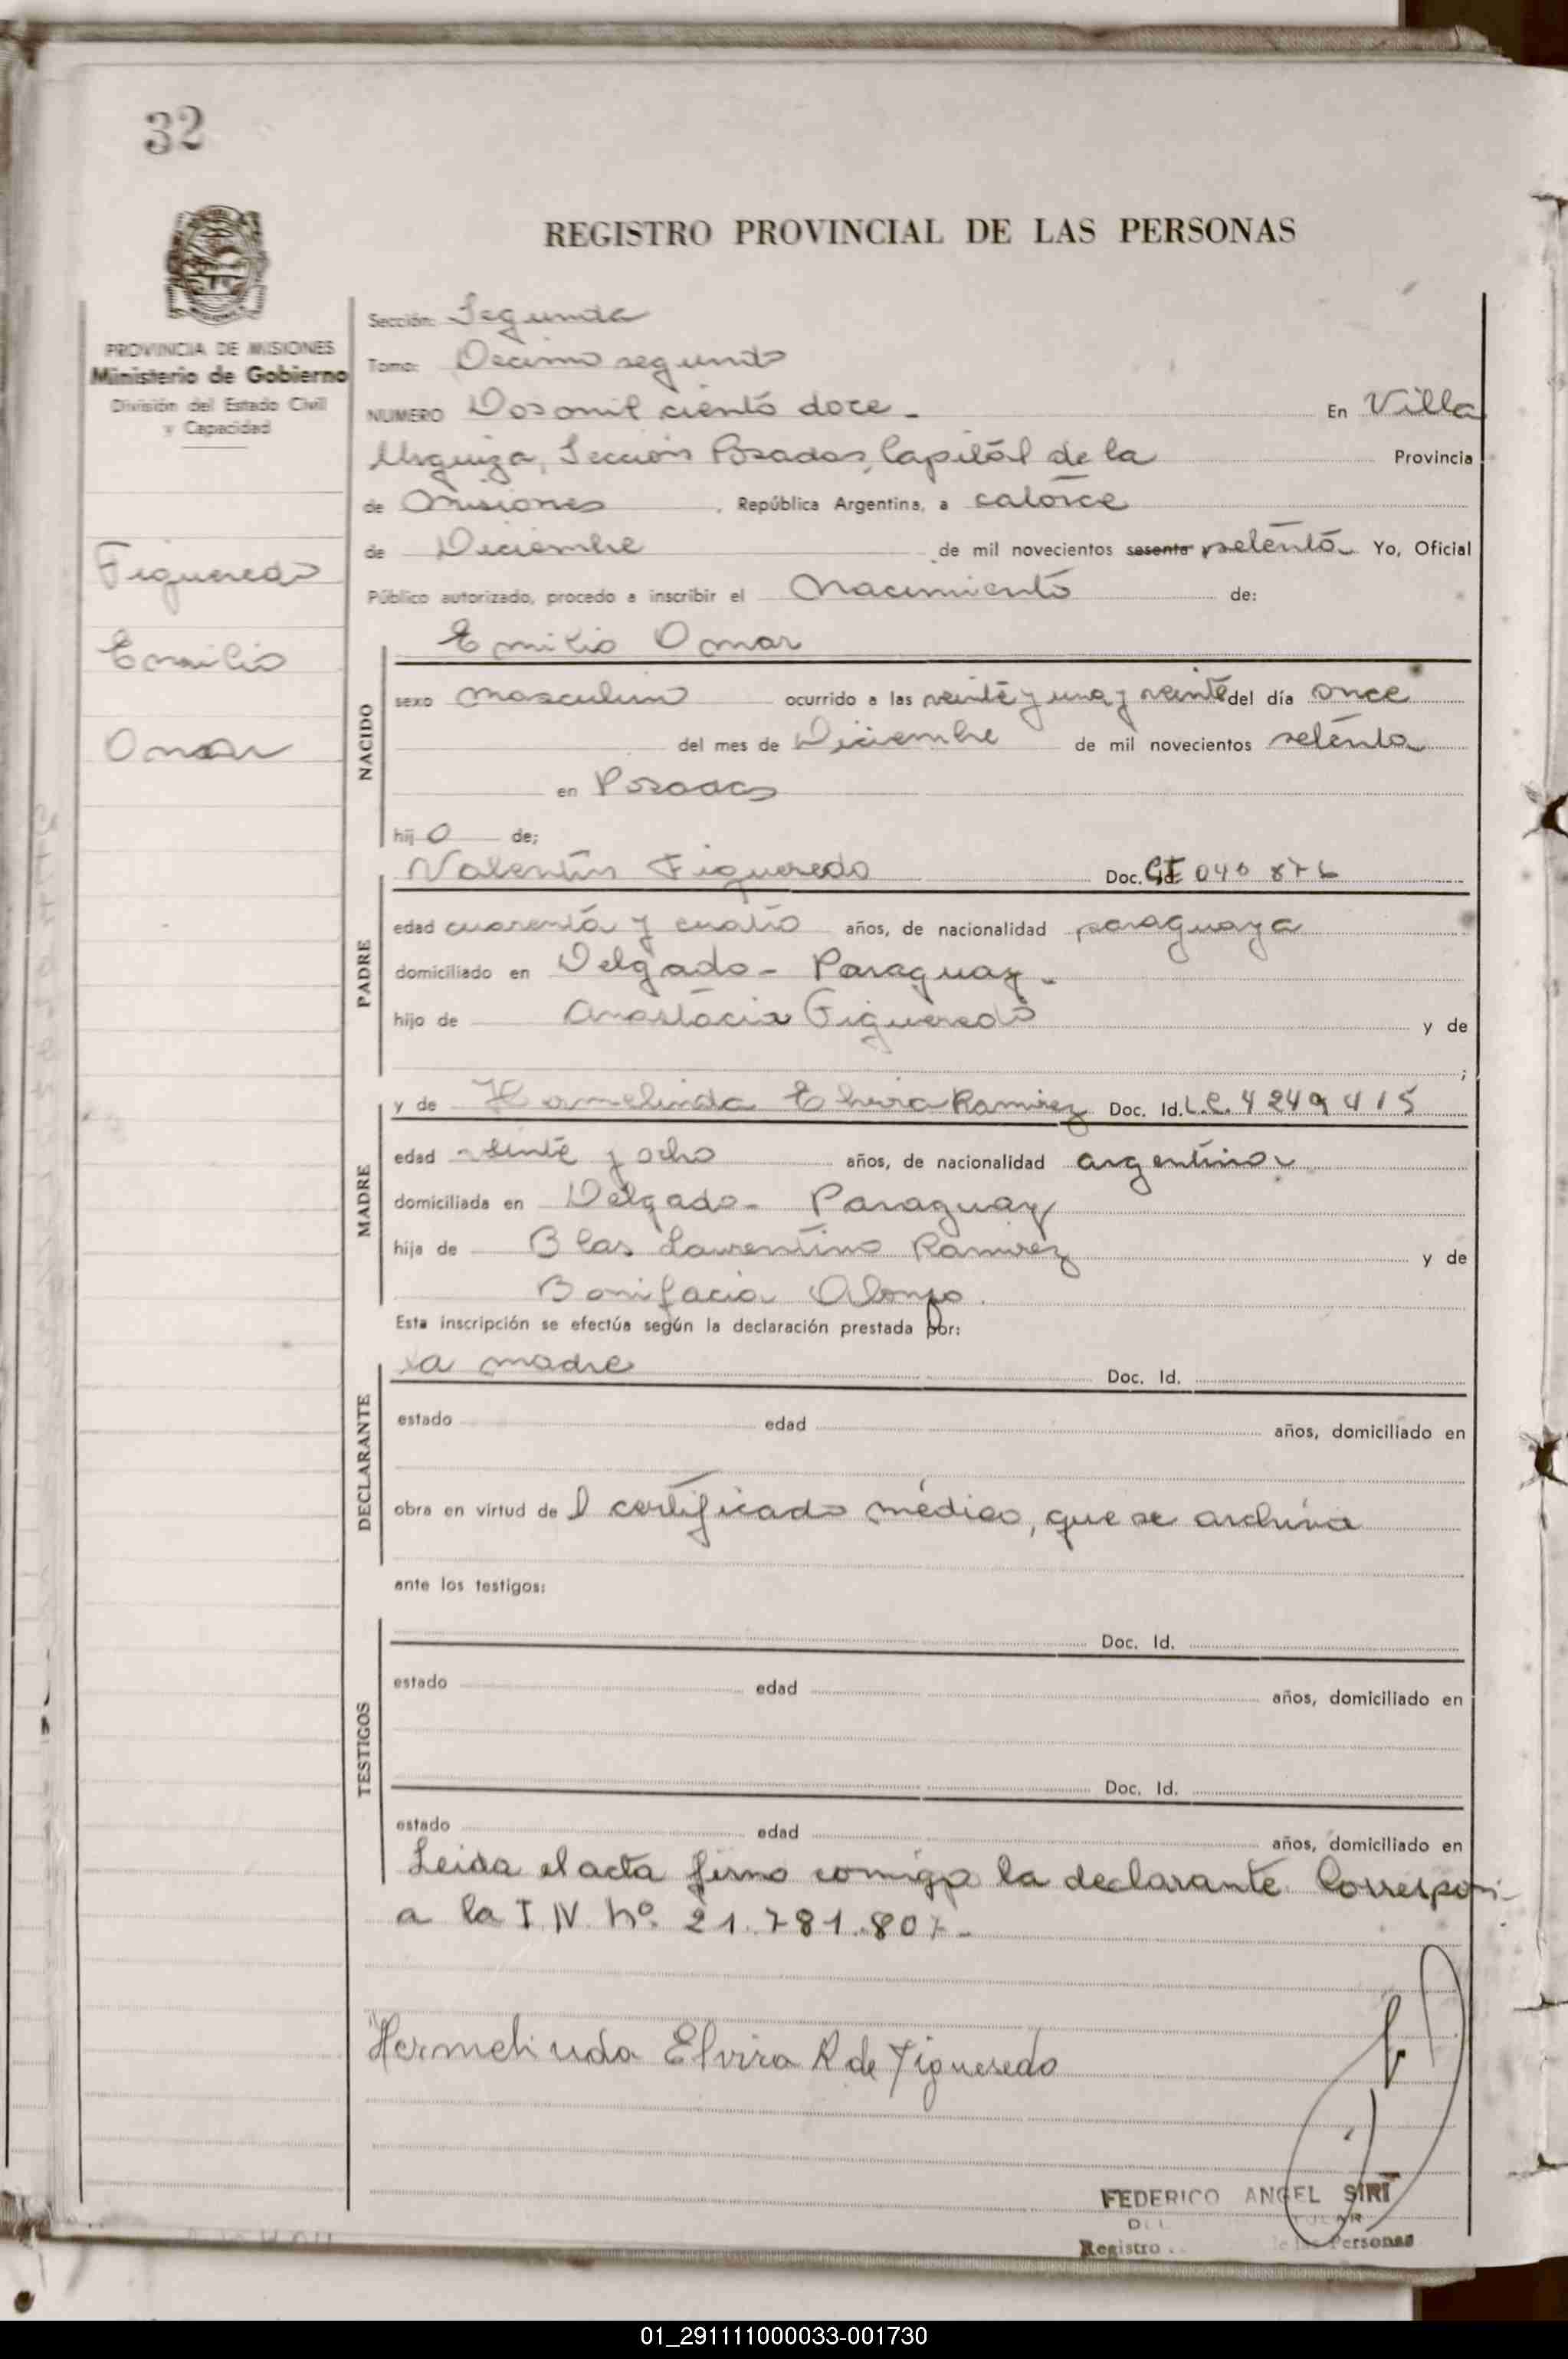 32
REGISTRO PROVINCIAL DE LAS PERSONAS
PROVINCIA DE MISIONES
Ministerio de Gobierno
División del Estado Civil
y Capacidad
Figueredo
Emilio
Omar
Sección: Segunda
Tomo: Decimo segundo
NUMERO Dos mil ciento doce - En Villa
Urquiza, Sección Posadas, Capital de la Provincia
de Misiones, República Argentina, a catorce
de Diciembre de mil novecientos sesenta setenta Yo, Oficial
Público autorizado, procedo a inscribir el Nacimiento de:
Emilio Omar
NACIDO
sexo masculino ocurrido a las veinte y una y veinte del día once
del mes de Diciembre de mil novecientos setenta
en Posadas
hijo de;
PADRE
Valentín Figueredo Doc. 040
edad cuarenta y cuatro años, de nacionalidad paraguaya
domiciliado en Delgado - Paraguay -
hijo de Anastacia Figueredo y de
;
MADRE
y de Hermelinda Elvira Ramirez Doc. Id. L.C. 4249415
edad veinte y ocho años, de nacionalidad argentina
domiciliada en Delgado - Paraguay
hija de Blas Laurentino Ramirez y de
Bonifacia Alonzo.
Esta inscripción se efectúa según la declaración prestada por:
DECLARANTE
la madre Doc. Id.
estado edad años, domiciliado en
obra en virtud de l certificado médico, que se archiva
ante los testigos:
TESTIGOS
Doc. Id.
estado edad años, domiciliado en
Doc. Id.
estado edad años, domiciliado en
Leida el acta firmo conmigo la declarante.
a la I.N. Nº 21.781.807-
Hermelinda Elvira R de Figueredo
FEDERICO ANGEL SIRI
Registro Personas
01_291111000033-001730